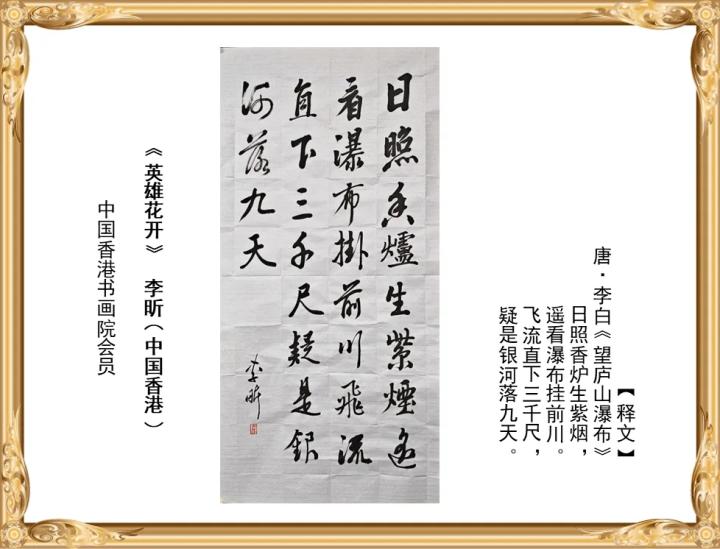 【释文】
唐·李白《望庐山瀑布》
日照香炉生紫烟，
遥看瀑布挂前川。
飞流直下三千尺，
疑是银河落九天。
日照香爐生紫煙遥
看瀑布掛前川飛流
直下三千尺疑是銀
河落九天
李昕
《英雄花开》 李昕（中国香港）
中国香港书画院会员